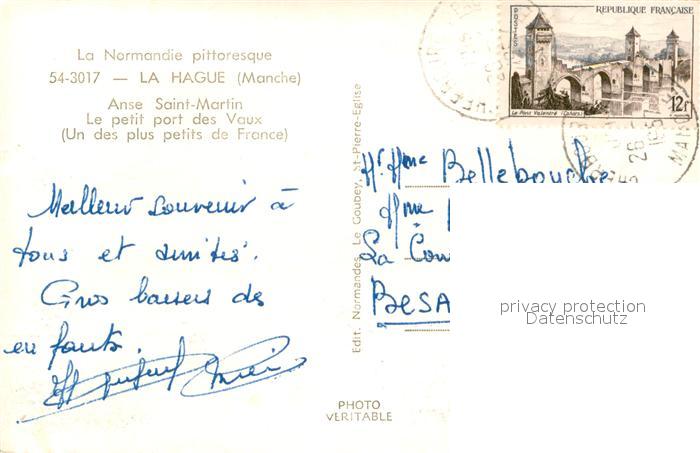 La Normandie pittoresque
54-3017 — LA HAGUE (Manche)
Anse Saint-Martin
Le petit port des Vaux
(Un des plus petits de France)
Meilleur souvenir à
tous et amitiés.
Gros baisers des
enfants.
Edit. Normandes Le Goubey, St-Pierre-Eglise
PHOTO
VERITABLE
REPUBLIQUE FRANÇAISE
POSTES
Le Pont Valentré (Cahors)
12f
26
1957
Mr Mme Bellebouche
Mme
La Con
BESA
privacy protection
Datenschutz